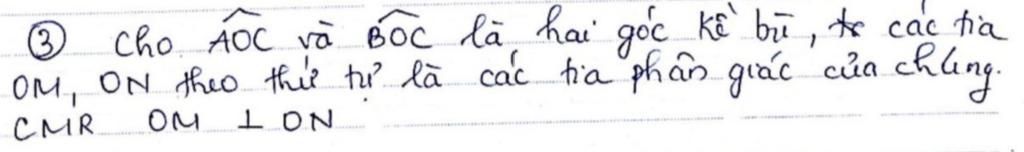 ③ Cho AOC và BOC là hai góc kề bù, các tia
OM, ON theo thứ tự là các tia phân giác của chúng.
CMR OM ⊥ ON